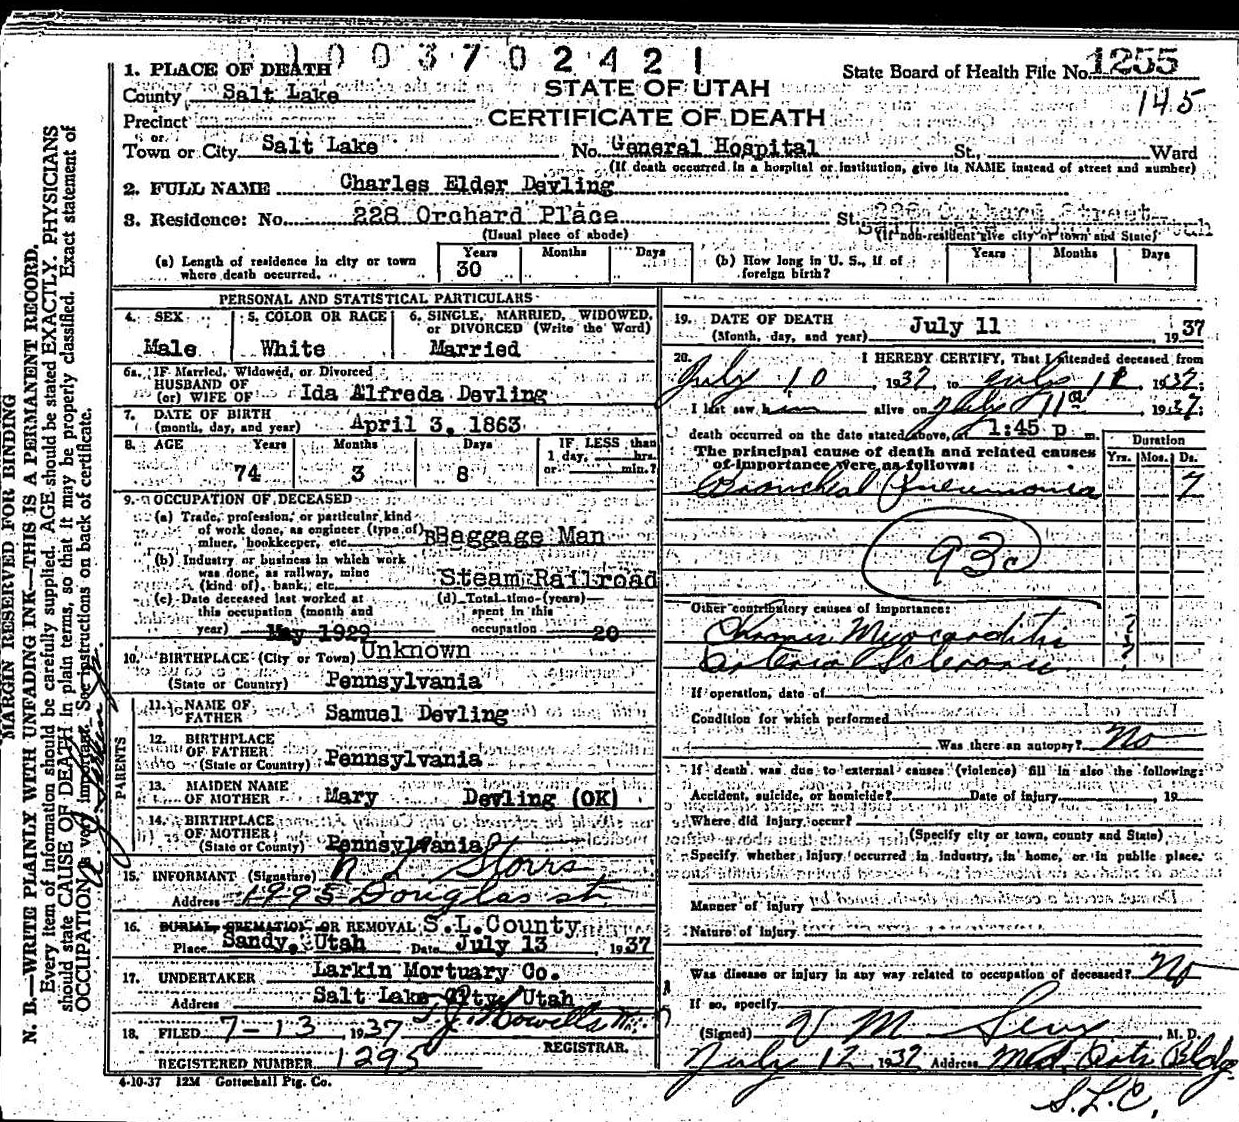 1003702421
1. PLACE OF DEATH
STATE OF UTAH
CERTIFICATE OF DEATH
State Board of Health File No. 1255
145
County Salt Lake
Precinct
or
Town or City Salt Lake No. General Hospital St., Ward
(If death occurred in a hospital or institution, give its NAME instead of street and number)
2. FULL NAME Charles Elder Devling
3. Residence: No. 228 Orchard Place St.
(Usual place of abode) (If non-resident give city or town and State)
(a) Length of residence in city or town where death occurred. Years 30 Months Days
(b) How long in U. S., if of foreign birth? Years Months Days
PERSONAL AND STATISTICAL PARTICULARS
4. SEX Male
5. COLOR OR RACE White
6. SINGLE, MARRIED, WIDOWED, or DIVORCED (Write the Word) Married
6a. IF Married, Widowed, or Divorced
HUSBAND OF
(or) WIFE OF Ida Alfreda Devling
7. DATE OF BIRTH
(month, day, and year) April 3, 1863
8. AGE Years 74 Months 3 Days 8 IF LESS than 1 day, hrs. or min.?
9. OCCUPATION OF DECEASED
(a) Trade, profession, or particular kind of work done, as engineer (type of) miner, bookkeeper, etc. Baggage Man
(b) Industry or business in which work was done, as railway, mine (kind of), bank, etc. Steam Railroad
(c) Date deceased last worked at this occupation (month and year) May 1929
(d) Total time (years) spent in this occupation 20
10. BIRTHPLACE (City or Town) Unknown
(State or Country) Pennsylvania
PARENTS
11. NAME OF FATHER Samuel Devling
12. BIRTHPLACE OF FATHER
(State or Country) Pennsylvania
13. MAIDEN NAME OF MOTHER Mary Devling (OK)
14. BIRTHPLACE OF MOTHER
(State or Country) Pennsylvania
15. INFORMANT (Signature) N L Storrs
Address 1995 Douglas st
16. BURIAL, CREMATION, OR REMOVAL S.L.County
Place Sandy, Utah Date July 13, 1937
17. UNDERTAKER Larkin Mortuary Co.
Address Salt Lake City, Utah
18. FILED 7-13, 1937 T.J. Howells
REGISTRAR.
REGISTERED NUMBER 1295
4-10-37 12M Gottschall Ptg. Co.
19. DATE OF DEATH
(Month, day, and year) July 11 1937
20. I HEREBY CERTIFY, That I attended deceased from
July 10, 1937 to July 11, 1937;
I last saw him alive on July 11a 1937;
death occurred on the date stated above, at 1:45 p m.
The principal cause of death and related causes of importance were as follows:
Duration
Yrs. Mos. Ds.
Bronchial Pneumonia 7
93c
Other contributory causes of importance:
Chronic Myocarditis ?
Arterio Sclerosis ?
If operation, date of
Condition for which performed
Was there an autopsy? No
If death was due to external causes (violence) fill in also the following:
Accident, suicide, or homicide? Date of injury 19
Where did injury occur?
(Specify city or town, county and State)
Specify whether injury occurred in industry, in home, or in public place.
Manner of injury
Nature of injury
Was disease or injury in any way related to occupation of deceased? No
If so, specify
(Signed) V M Sevy, M. D.
July 12, 1937 Address Med. Arts Bldg.
S.L.C.
MARGIN RESERVED FOR BINDING
N. B.—WRITE PLAINLY WITH UNFADING INK—THIS IS A PERMANENT RECORD.
Every item of information should be carefully supplied. AGE should be stated EXACTLY. PHYSICIANS
should state CAUSE OF DEATH in plain terms, so that it may be properly classified. Exact statement of
OCCUPATION is very important. See instructions on back of certificate.